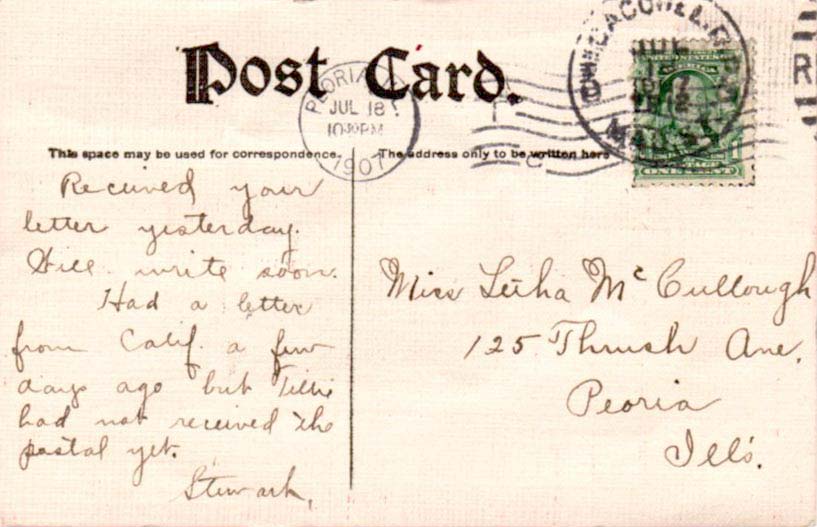 Post Card.
PEORIA, ILL.
JUL 18
10-30PM
1907
This space may be used for correspondence.
The address only to be written here
UNITED STATES
ONE CENT
Received your
letter yesterday.
Will write soon.
Had a letter
from Calif. a few
days ago but Tillie
had not received the
postal yet.
Stewart,
Miss Letha McCullough
125 Thrush Ave.
Peoria
Ills.